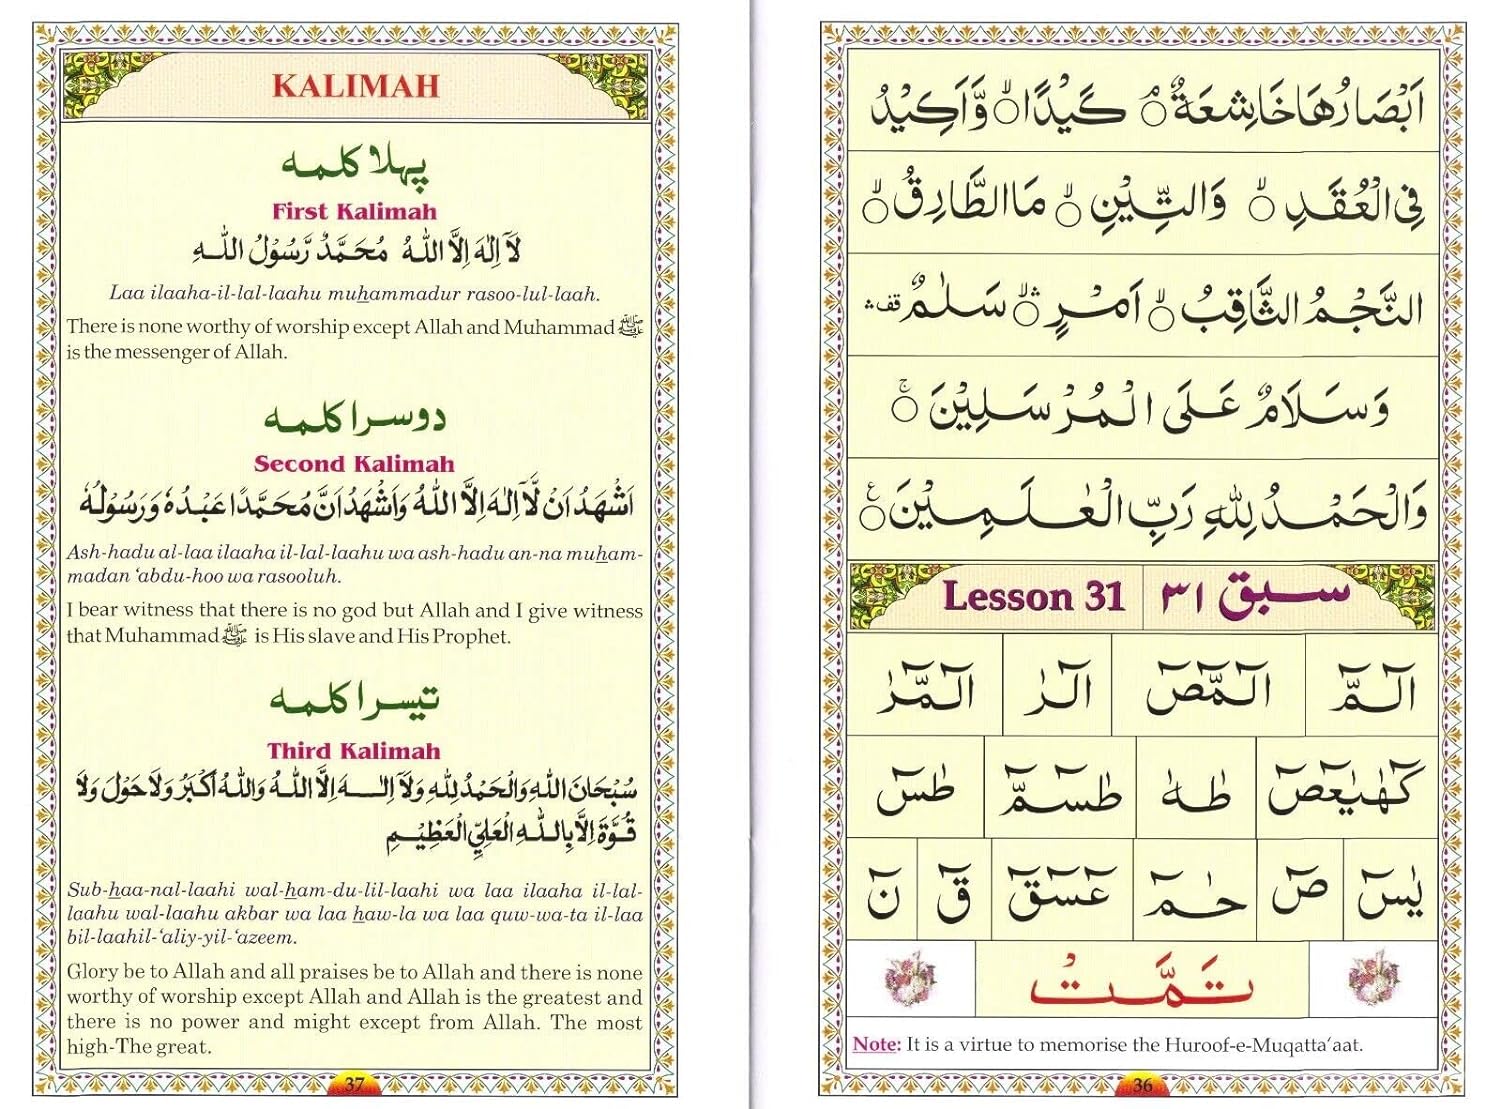 KALIMAH
پہلا کلمہ
First Kalimah
لَآ اِلٰهَ اِلَّا اللّٰهُ مُحَمَّدٌ رَّسُوْلُ اللّٰهِ
Laa ilaaha-il-lal-laahu muhammadur rasoo-lul-laah.
There is none worthy of worship except Allah and Muhammad ﷺ
is the messenger of Allah.
دوسرا کلمہ
Second Kalimah
اَشْهَدُ اَنْ لَّآ اِلٰهَ اِلَّا اللّٰهُ وَاَشْهَدُ اَنَّ مُحَمَّدًا عَبْدُهٗ وَرَسُوْلُهٗ
Ash-hadu al-laa ilaaha il-lal-laahu wa ash-hadu an-na muham-
madan ‘abdu-hoo wa rasooluh.
I bear witness that there is no god but Allah and I give witness
that Muhammad ﷺ is His slave and His Prophet.
تیسرا کلمہ
Third Kalimah
سُبْحَانَ اللّٰهِ وَالْحَمْدُ لِلّٰهِ وَلَآ اِلٰهَ اِلَّا اللّٰهُ وَاللّٰهُ اَكْبَرُ وَلَا حَوْلَ وَلَا
قُوَّةَ اِلَّا بِاللّٰهِ الْعَلِيِّ الْعَظِيْمِ
Sub-haa-nal-laahi wal-ham-du-lil-laahi wa laa ilaaha il-lal-
laahu wal-laahu akbar wa laa haw-la wa laa quw-wa-ta il-laa
bil-laahil-‘aliy-yil-‘azeem.
Glory be to Allah and all praises be to Allah and there is none
worthy of worship except Allah and Allah is the greatest and
there is no power and might except from Allah. The most
high-The great.
37
اَبْصَارُهَا خَاشِعَةٌ ۘ كَيْدًا ۙ وَّاَكِيْدُ
فِي الْعُقَدِ ۙ وَالتِّيْنِ ۙ مَا الطَّارِقُ ۙ
النَّجْمُ الثَّاقِبُ ۙ اَمْرٍ ۛۙ سَلٰمٌ قف ۛ
وَسَلَامٌ عَلَى الْمُرْسَلِيْنَ ۚ
وَالْحَمْدُ لِلّٰهِ رَبِّ الْعٰلَمِيْنَ ع
Lesson 31 سبق ۳۱
الٓمّٓ الٓمّٓصٓ الٓرٰ الٓمّٓرٰ
كٓهٰيٰعٓصٓ طٰهٰ طٰسٓمّٓ طٰسٓ
يٰسٓ صٓ حٰمٓ عٓسٓقٓ قٓ نٓ
تَمَّتْ
Note: It is a virtue to memorise the Huroof-e-Muqatta’aat.
36